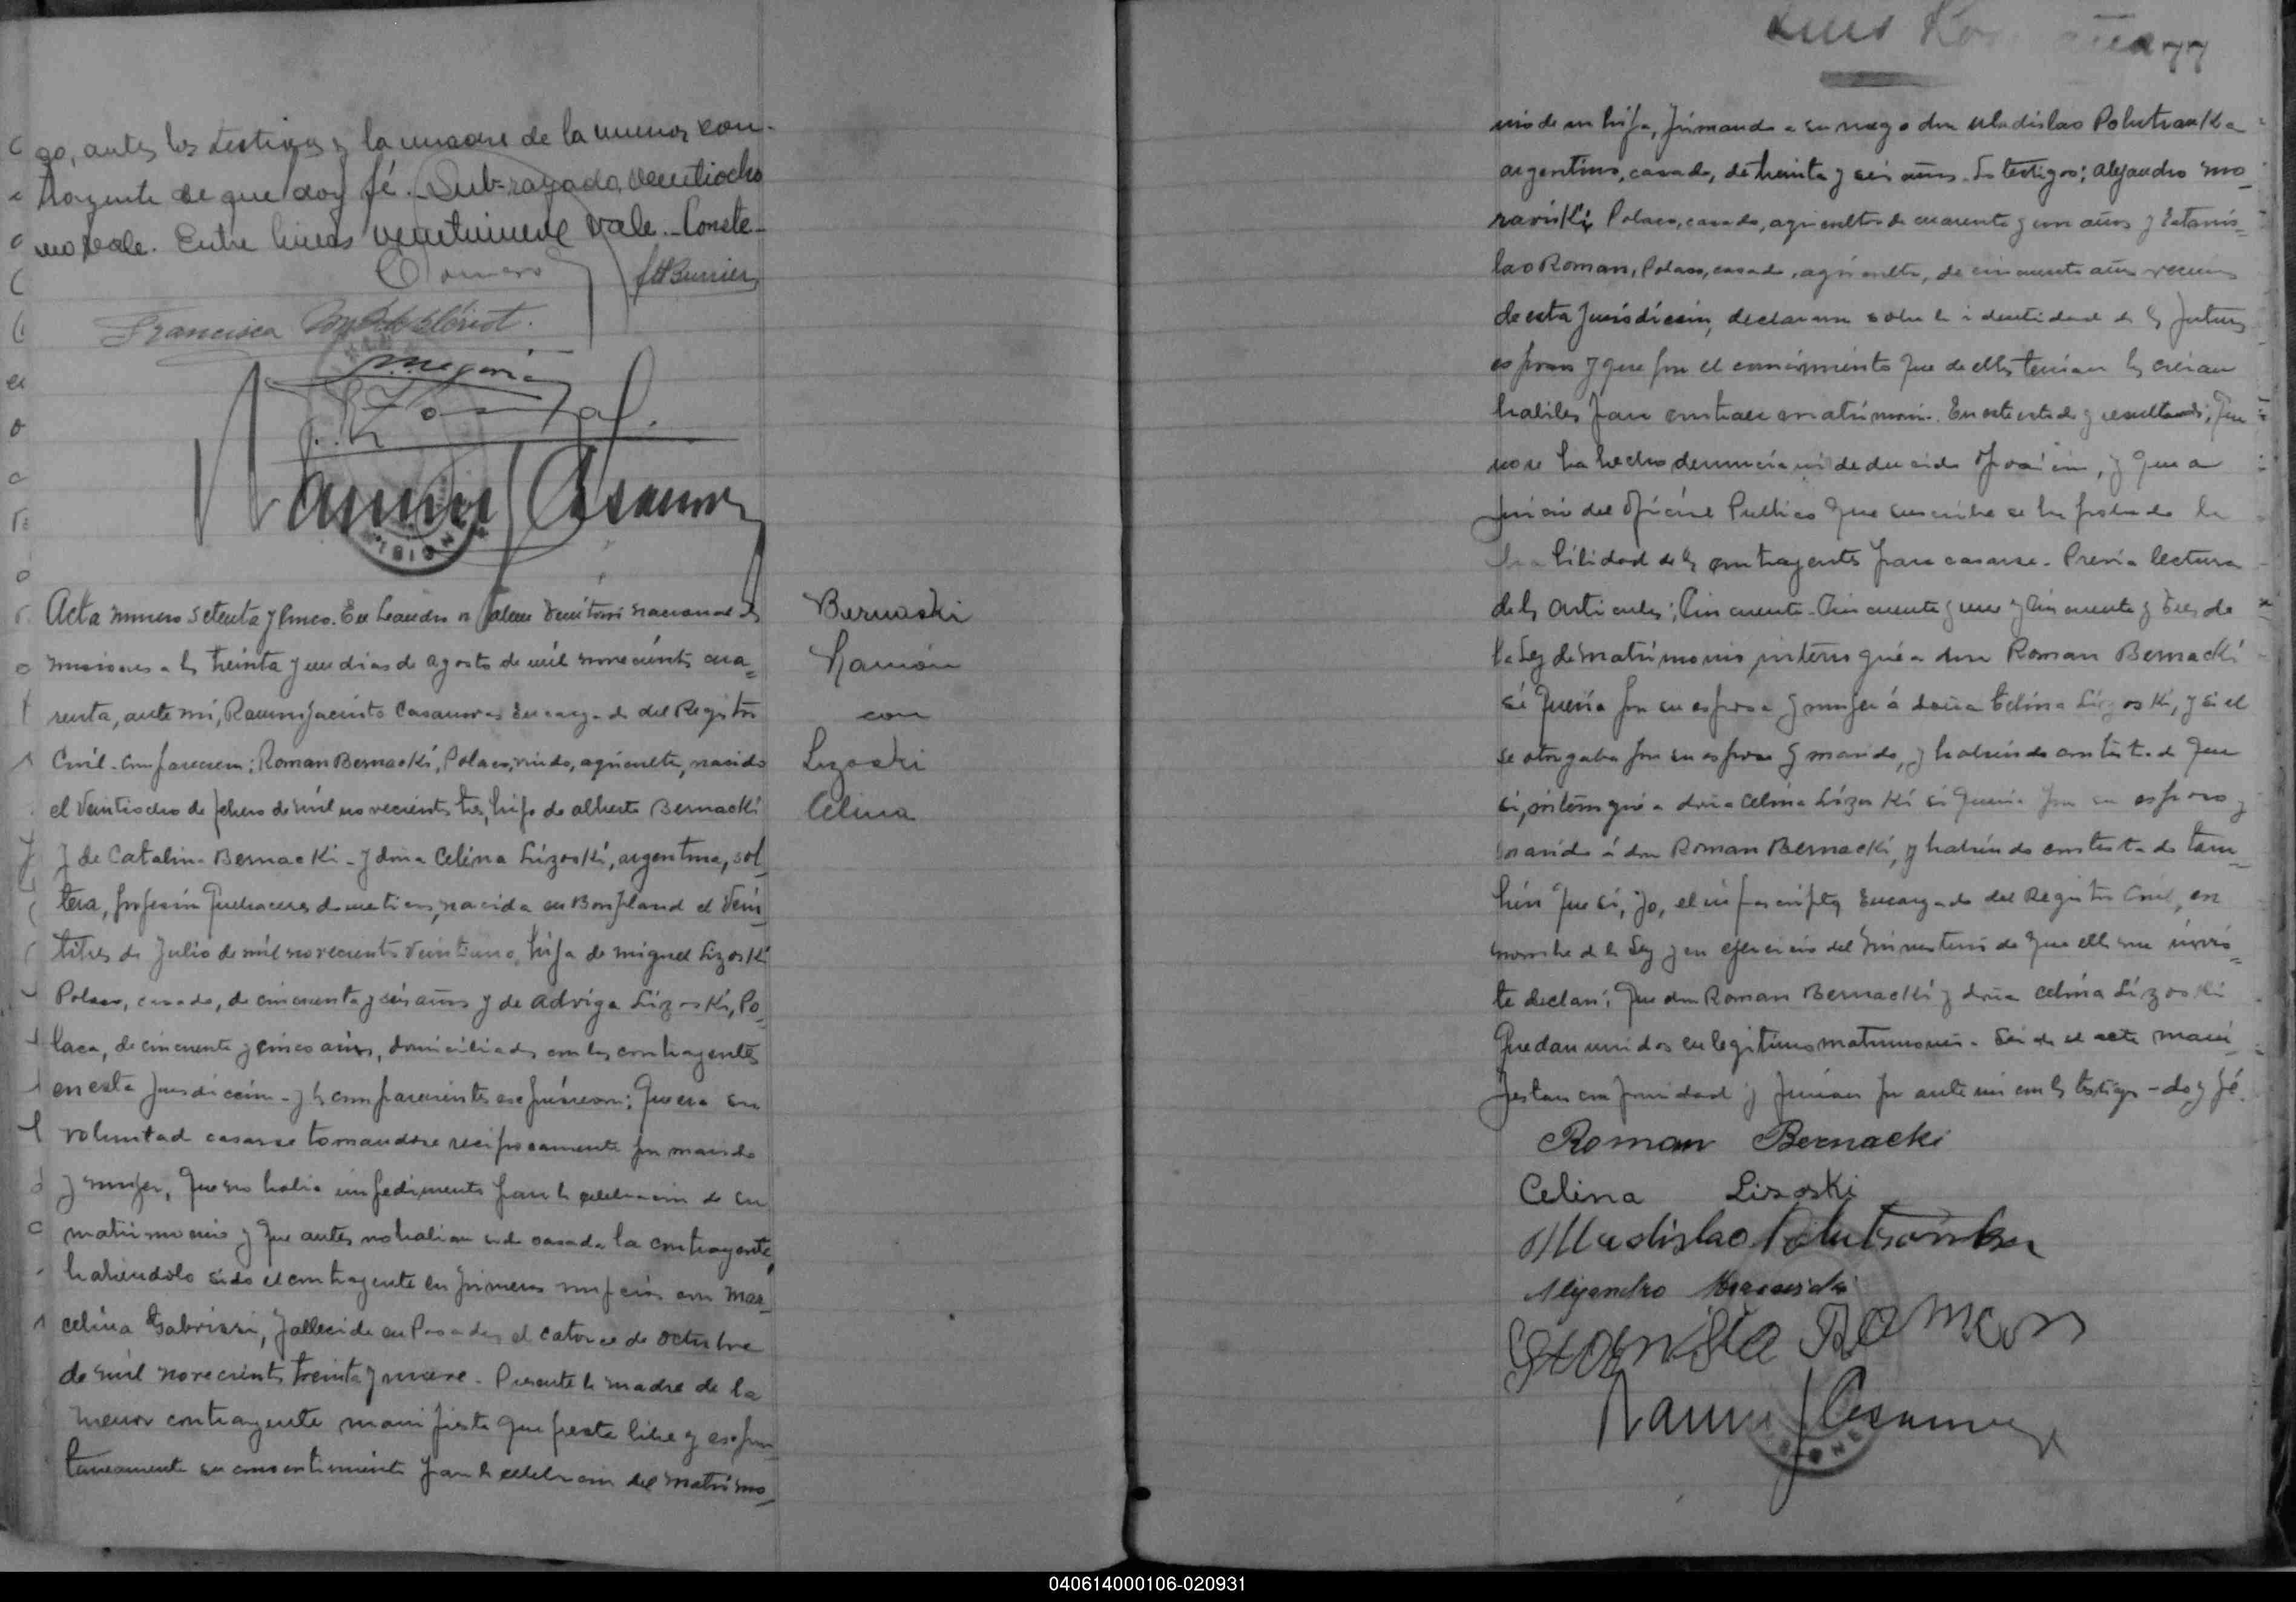 go, antes los testigos y la madre de la menor con-
trayente de que doy fé. Sub-rayado, veintiocho
no vale. Entre lineas veintinueve vale. Conste-
Francisca
Acta numero setenta y cinco. En Leandro N Alem Territorio nacional de
misiones a los treinta y un dias de agosto de mil novecientos cua=
renta, ante mi, Ramon Jacinto Casanova Encargado del Registro
Civil. Comparecen: Roman Bernacki, Polaco, viudo, agricultor, nacido
el veintiocho de febrero de mil novecientos tres, hijo de alberto Bernacki
y de Catalina Bernacki - y doña Celina Lizoski, argentina, sol=
tera, profesión quehaceres domesticos, nacida en Bonpland el Vein=
titres de Julio de mil novecientos veintiuno, hija de miguel Lizoski
Polaco, casado, de cincuenta y seis años y de Adviga Lizoski, Po=
laca, de cincuenta y cinco años, domiciliados con los contrayentes
en esta jurisdicción - y los comparecientes expusieron: Que era su
voluntad casarse tomandose reciprocamente por marido
y mujer, que no habia impedimento para la celebracion de su
matrimonio y que antes no habian sido casada la contrayente,
habiendolo sido el contrayente en primeras nupcias con Mar=
celina Gabrissi, fallecida en Posadas el catorce de octubre
de mil novecientos treinta y nueve. Presente la madre de la
menor contrayente manifiesta que presta libre y espon=
taneamente su consentimiento para la celebracion del matrimo=
Bernaski
Ramón
con
Lizoski
Celina
77
nio de su hija, firmando a su ruego don Uladislao Polutranka
argentino, casado, de treinta y seis años. Los testigos: Alejandro mo=
raviski, Polaco, casado, agricultor de cuarenta y un años y Estanis=
lao Roman, Polaco, casado, agricultor, de cincuenta años vecinos
de esta Jurisdicción, declararon sobre la identidad de los futuros
esposos y que por el conocimiento que de ellos tenian los creian
habiles para contraer matrimonio. En este estado y resultando: Que
no se ha hecho denuncia ni deducido oposicion, y que a
juicio del Oficial Publico que suscribe se ha probado la
habilidad de los contrayentes para casarse. Previa lectura
de los articulos; Cincuenta - Cincuenta y uno y Cincuenta y tres de
la Ley de matrimonio, interrogué a don Roman Bernacki
si queria por su esposa y mujer á doña Celina Lizoski, y si el
se otorgaba por su esposo y marido, y habiendo contestado que
si, interrogué a doña Celina Lizoski si queria por su esposo y
marido á don Roman Bernacki, y habiendo contestado tam=
bien que si, yo, el infrascripto, Encargado del Registro Civil, en
nombre de la Ley y en ejercicio del ministerio de que ella me invis=
te declaro: Que don Roman Bernacki y doña Celina Lizoski
Quedan unidos en legitimo matrimonio. Leida el acta mani=
fiestan conformidad y firman por ante mi con los testigos - doy fé.
Roman Bernacki
Celina Lizoski
Uladislao Polutranka
Alejandro
Roman
040614000106-020931